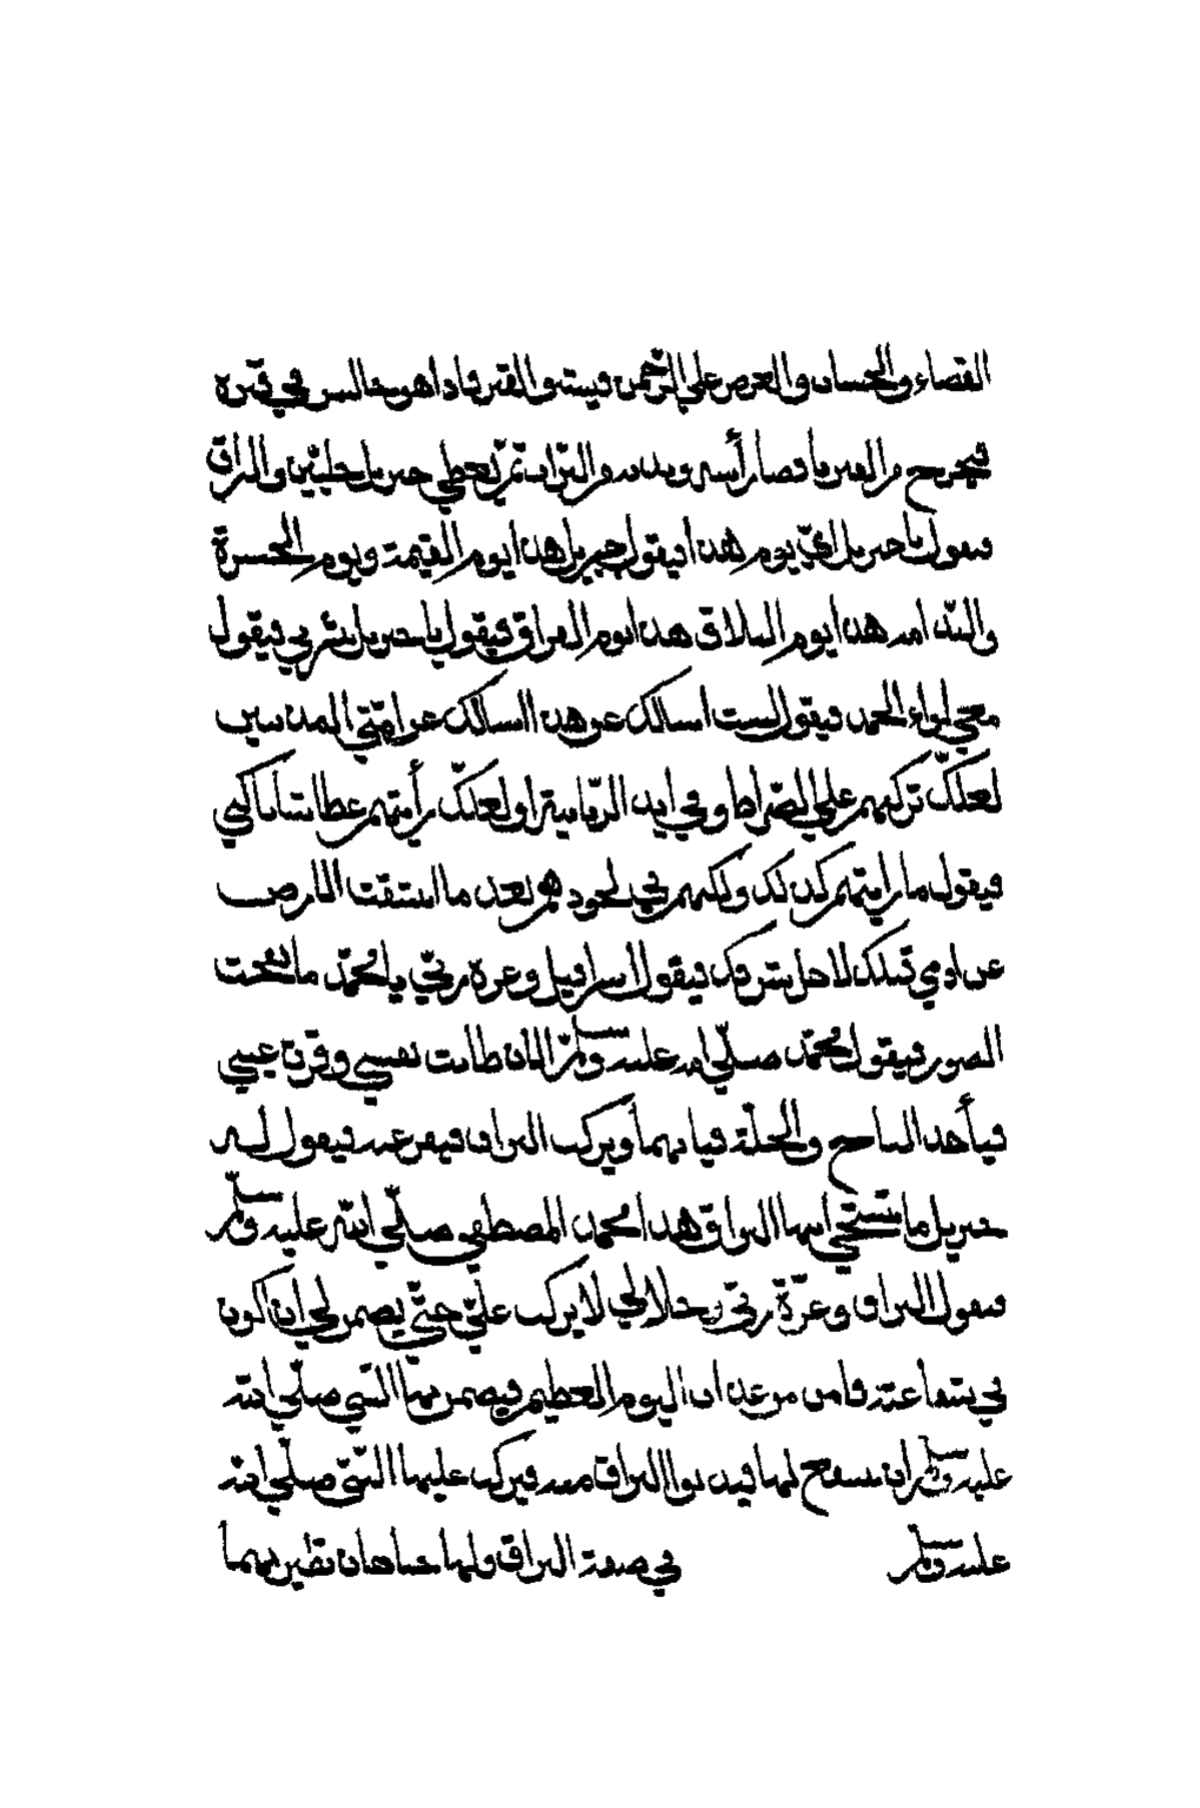 القضاء والحساب والعرض علي الرّحمن فيستو القبر فاذا هو جالس في قبره
فيخرج من القبر نافضا رأسه وبدنه من التّراب ثمّ يعطي جبريل حليتين والبراق
فيقول يا جبريل ايّ يوم هذا فيقول جبريل هذا يوم القيمة ويوم الحسرة
والنّدامه هذا يوم التلاق هذا يوم الفراق فيقول يا جبريل بشّرني فيقول
معي لواء الحمد فيقول لست اسالك عن هذا اسالك عن امّتي المذنبين
لعلّك تركتهم علي الصّراط وفي ايد الزّبانية او لعلّك رأيتهم عطاشا
فيقول ما رايتهم كذلك ولكنهم في لحودهم بعد ما انشقت الارض
عن ادمي قبلك لاجل شرفك فيقول اسرافيل وعزة ربّي يا محمّد ما نفخت
الصور فيقول محمّد صلّي الله عليه وسلم الان طابت نفسي وقرت عيني
فيأخذ التاج والحلّة فيا بهما ويركب البراق فيفر عنه فيقول له
جبريل ما تستحي ايها البراق هذا محمد المصطفي صلّي الله عليه وسلّم
فيقول البراق وعزّة ربّي وجلالي لا يركب عليّ حتّي يضمن لي ان اكون
في شفاعته فامن من عذاب اليوم العظيم فيضمن لها النّبي صلّي الله
عليه وسلم ان يشفع لها فيدنوا البراق منه فيركب عليها النّبيّ صلّي الله
عليه وسلم في صفة البراق ولها جناحان تطير بهما